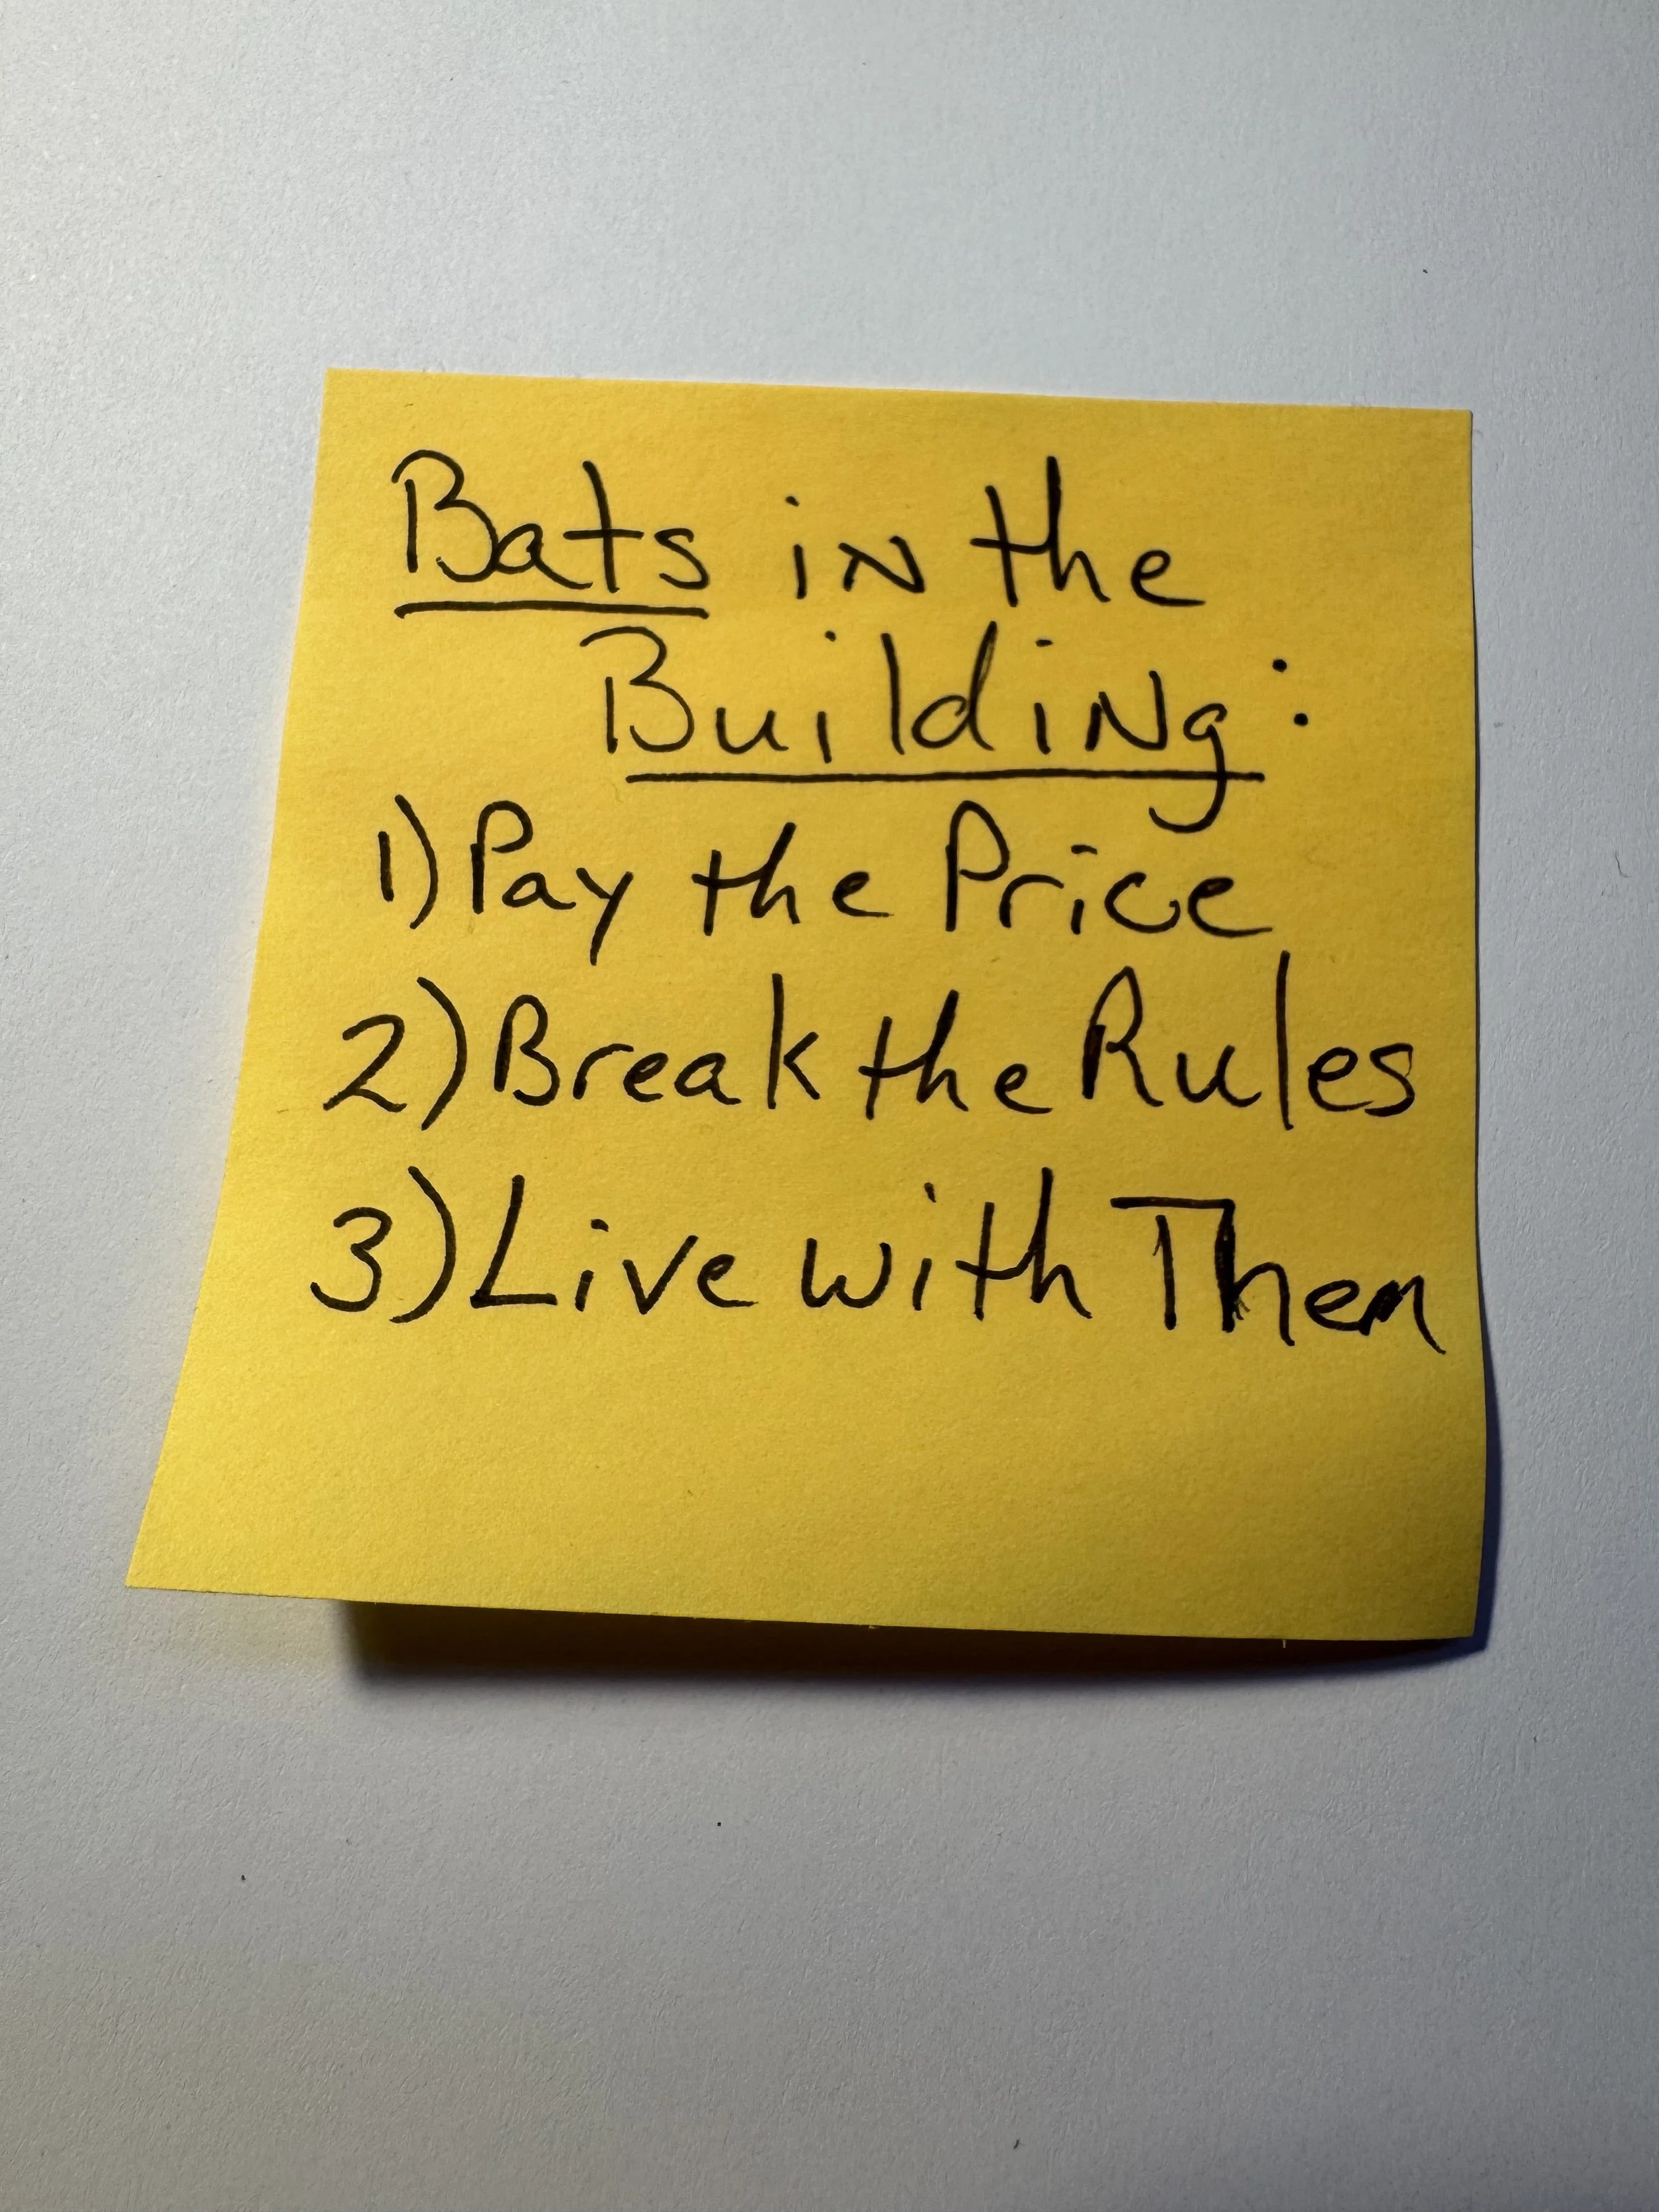 Bats in the
Building:
1) Pay the Price
2) Break the Rules
3) Live with Them